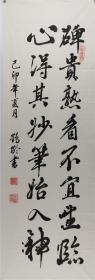 碑貴熟看不宜生臨
心得其妙筆始入神
己卯年夏月 書